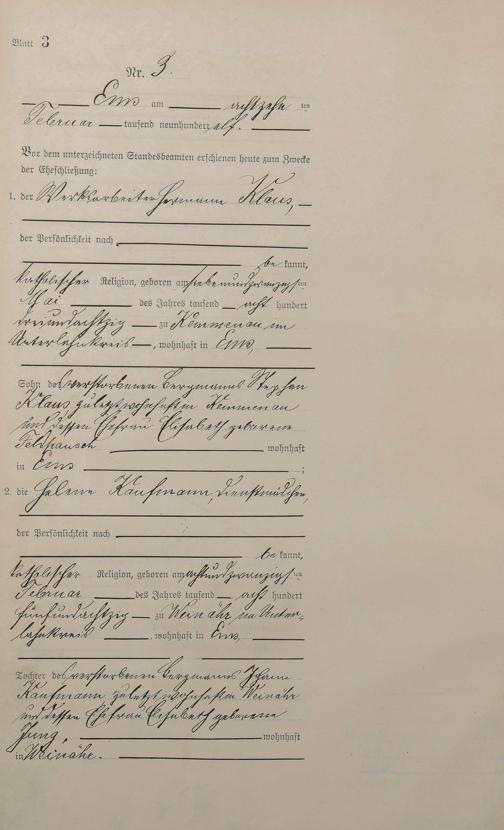 Blatt 3
Nr. 3.
Ems am achtzehn ten
Februar tausend neunhundert elf.
Vor dem unterzeichneten Standesbeamten erschienen heute zum Zwecke
der Eheschließung:
1. der Werksarbeiter Hermann Klaus,
der Persönlichkeit nach
be kannt,
katholischer Religion, geboren am siebenundzwanzigsten
Mai des Jahres tausend acht hundert
dreiundachtzig zu Kemmenau im
Unterlahnkreis, wohnhaft in Ems,
Sohn des verstorbenen Bergmanns Stephan
Klaus zuletzt wohnhaft in Kemmenau
und dessen Ehefrau Elisabeth geborene
wohnhaft
in Ems ;
2. die Helene Kaufmann, Dienstmädchen,
der Persönlichkeit nach
be kannt,
katholischer Religion, geboren am achtundzwanzigsten
Februar des Jahres tausend acht hundert
fünfundachtzig zu Weinähr im Unter-
lahnkreis, wohnhaft in Ems,
Tochter des verstorbenen Bergmanns Johann
Kaufmann zuletzt wohnhaft in Weinähr
und dessen Ehefrau Elisabeth geborene
Jung, wohnhaft
in Weinähr.